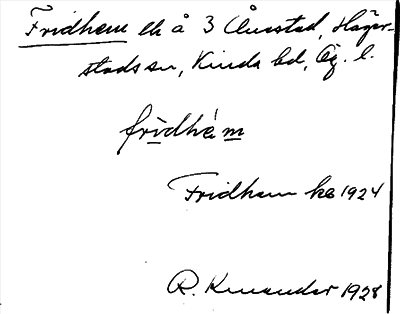 Fridhem lh å 3 Ånestad, Häger-
stads sn, Kinda hd, Ög. l.
frìdhè́m
Fridhem ks 1924
R. Kinander 1928